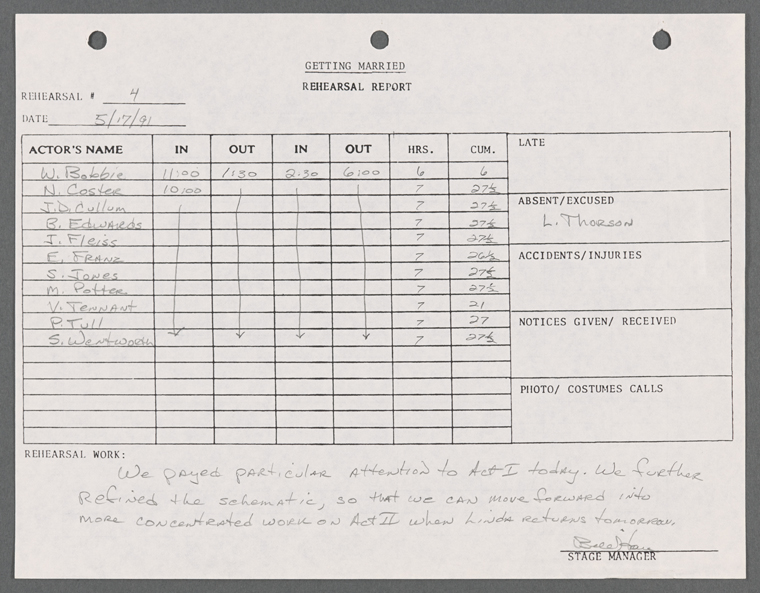 GETTING MARRIED
REHEARSAL REPORT
REHEARSAL # 4
DATE 5/17/91
ACTOR'S NAME IN OUT IN OUT HRS. CUM.
W. Bobbie 11:00 1:30 2:30 6:00 6 6
N. Coster 10:00 7 27½
J.D. Cullum 7 27½
B. Edwards 7 27½
J. Fleiss 7 27½
E. Franz 7 26½
S. Jones 7 27½
M. Potter 7 27½
V. Tennant 7 21
P. Tull 7 27
S. Wentworth 7 27½
LATE
ABSENT/EXCUSED
L. Thorson
ACCIDENTS/INJURIES
NOTICES GIVEN/ RECEIVED
PHOTO/ COSTUMES CALLS
REHEARSAL WORK:
We payed particular attention to Act I today. We further
refined the schematic, so that we can move forward into
more concentrated work on Act II when Linda returns tomorrow.
STAGE MANAGER